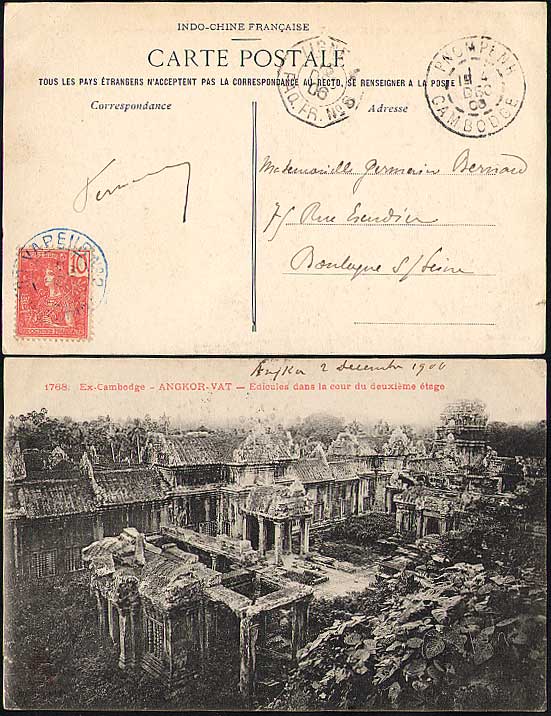 INDO-CHINE FRANÇAISE
CARTE POSTALE
TOUS LES PAYS ÉTRANGERS N'ACCEPTENT PAS LA CORRESPONDANCE AU RECTO, SE RENSEIGNER A LA POSTE
Correspondance
Adresse
LIGNE
PAQ. FR. Nº 8
PNOMPENH
DEC
CAMBODGE
Mademoiselle Germain Bernard
75 Rue
Boulogne s/Seine
VAPEUR Nº 2
10
Angkor 2 Decembre 1906
1768. Ex-Cambodge - ANGKOR-VAT — Edicules dans la cour du deuxième étage